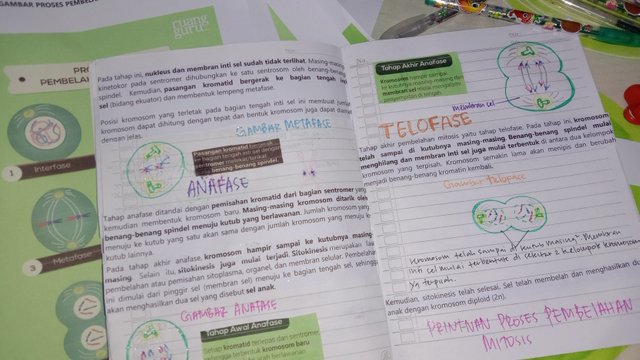 GAMBAR PROSES PEMBEL
ruang
guru
PR
PEMBELA
1
Interfase
3
Metafase
Pada tahap ini, nukleus dan membran inti sel sudah tidak terlihat. Masing-masing
kinetokor pada sentromer dihubungkan ke satu sentrosom oleh benang-benang
spindel. Kemudian, pasangan kromatid bergerak ke bagian tengah inti
sel (bidang ekuator) dan membentuk lempeng metafase.
Posisi kromosom yang terletak pada bagian tengah inti sel ini membuat jumlah
kromosom dapat dihitung dengan tepat dan bentuk kromosom juga dapat diamati
dengan jelas.
GAMBAR METAFASE
Pasangan kromatid bergerak
ke bagian tengah inti sel dengan
sentromer melekat/terikat
benang-benang spindel.
ANAFASE
Tahap anafase ditandai dengan pemisahan kromatid dari bagian sentromer yang
kemudian membentuk kromosom baru. Masing-masing kromosom ditarik oleh
benang-benang spindel menuju ke kutub yang berlawanan. Jumlah kromosom yang
menuju ke kutub yang satu akan sama dengan jumlah kromosom yang menuju ke
kutub lainnya.
Pada tahap akhir anafase, kromosom hampir sampai ke kutubnya masing-
masing. Selain itu, sitokinesis juga mulai terjadi. Sitokinesis merupakan
pembelahan atau pemisahan sitoplasma, organel, dan membran selular. Pembelahan
ini dimulai dari pinggir sel (membran sel) menuju ke bagian tengah sel, sehingga
akan menghasilkan dua sel yang disebut sel anak.
GAMBAR ANAFASE
Tahap Awal Anafase
Setiap kromatid terlepas dari sentromer,
sehingga terbentuk kromosom baru
Tahap Akhir Anafase
Kromosom hampir sampai
ke kutubnya masing-masing dan
membran sel mulai mengalami
penyempitan di tengah.
membran sel
TELOFASE
Tahap akhir pembelahan mitosis yaitu tahap telofase. Pada tahap ini, kromosom
telah sampai di kutubnya masing-masing. Benang-benang spindel mulai
menghilang dan membran inti sel juga mulai terbentuk di antara dua kelompok
kromosom yang terpisah. Kromosom semakin lama akan menipis dan berubah
menjadi benang-benang kromatin kembali.
Gambar Telofase
Kromosom telah sampai di kutub masing². Membran
inti sel mulai terbentuk di sekitar 2 kelompok kromosom
yg terpisah.
Kemudian, sitokinesis telah selesai. Sel telah membelah dan menghasilkan dua
anak dengan kromosom diploid (2n).
PRINTNAN PROSES PEMBELAHAN
MITOSIS